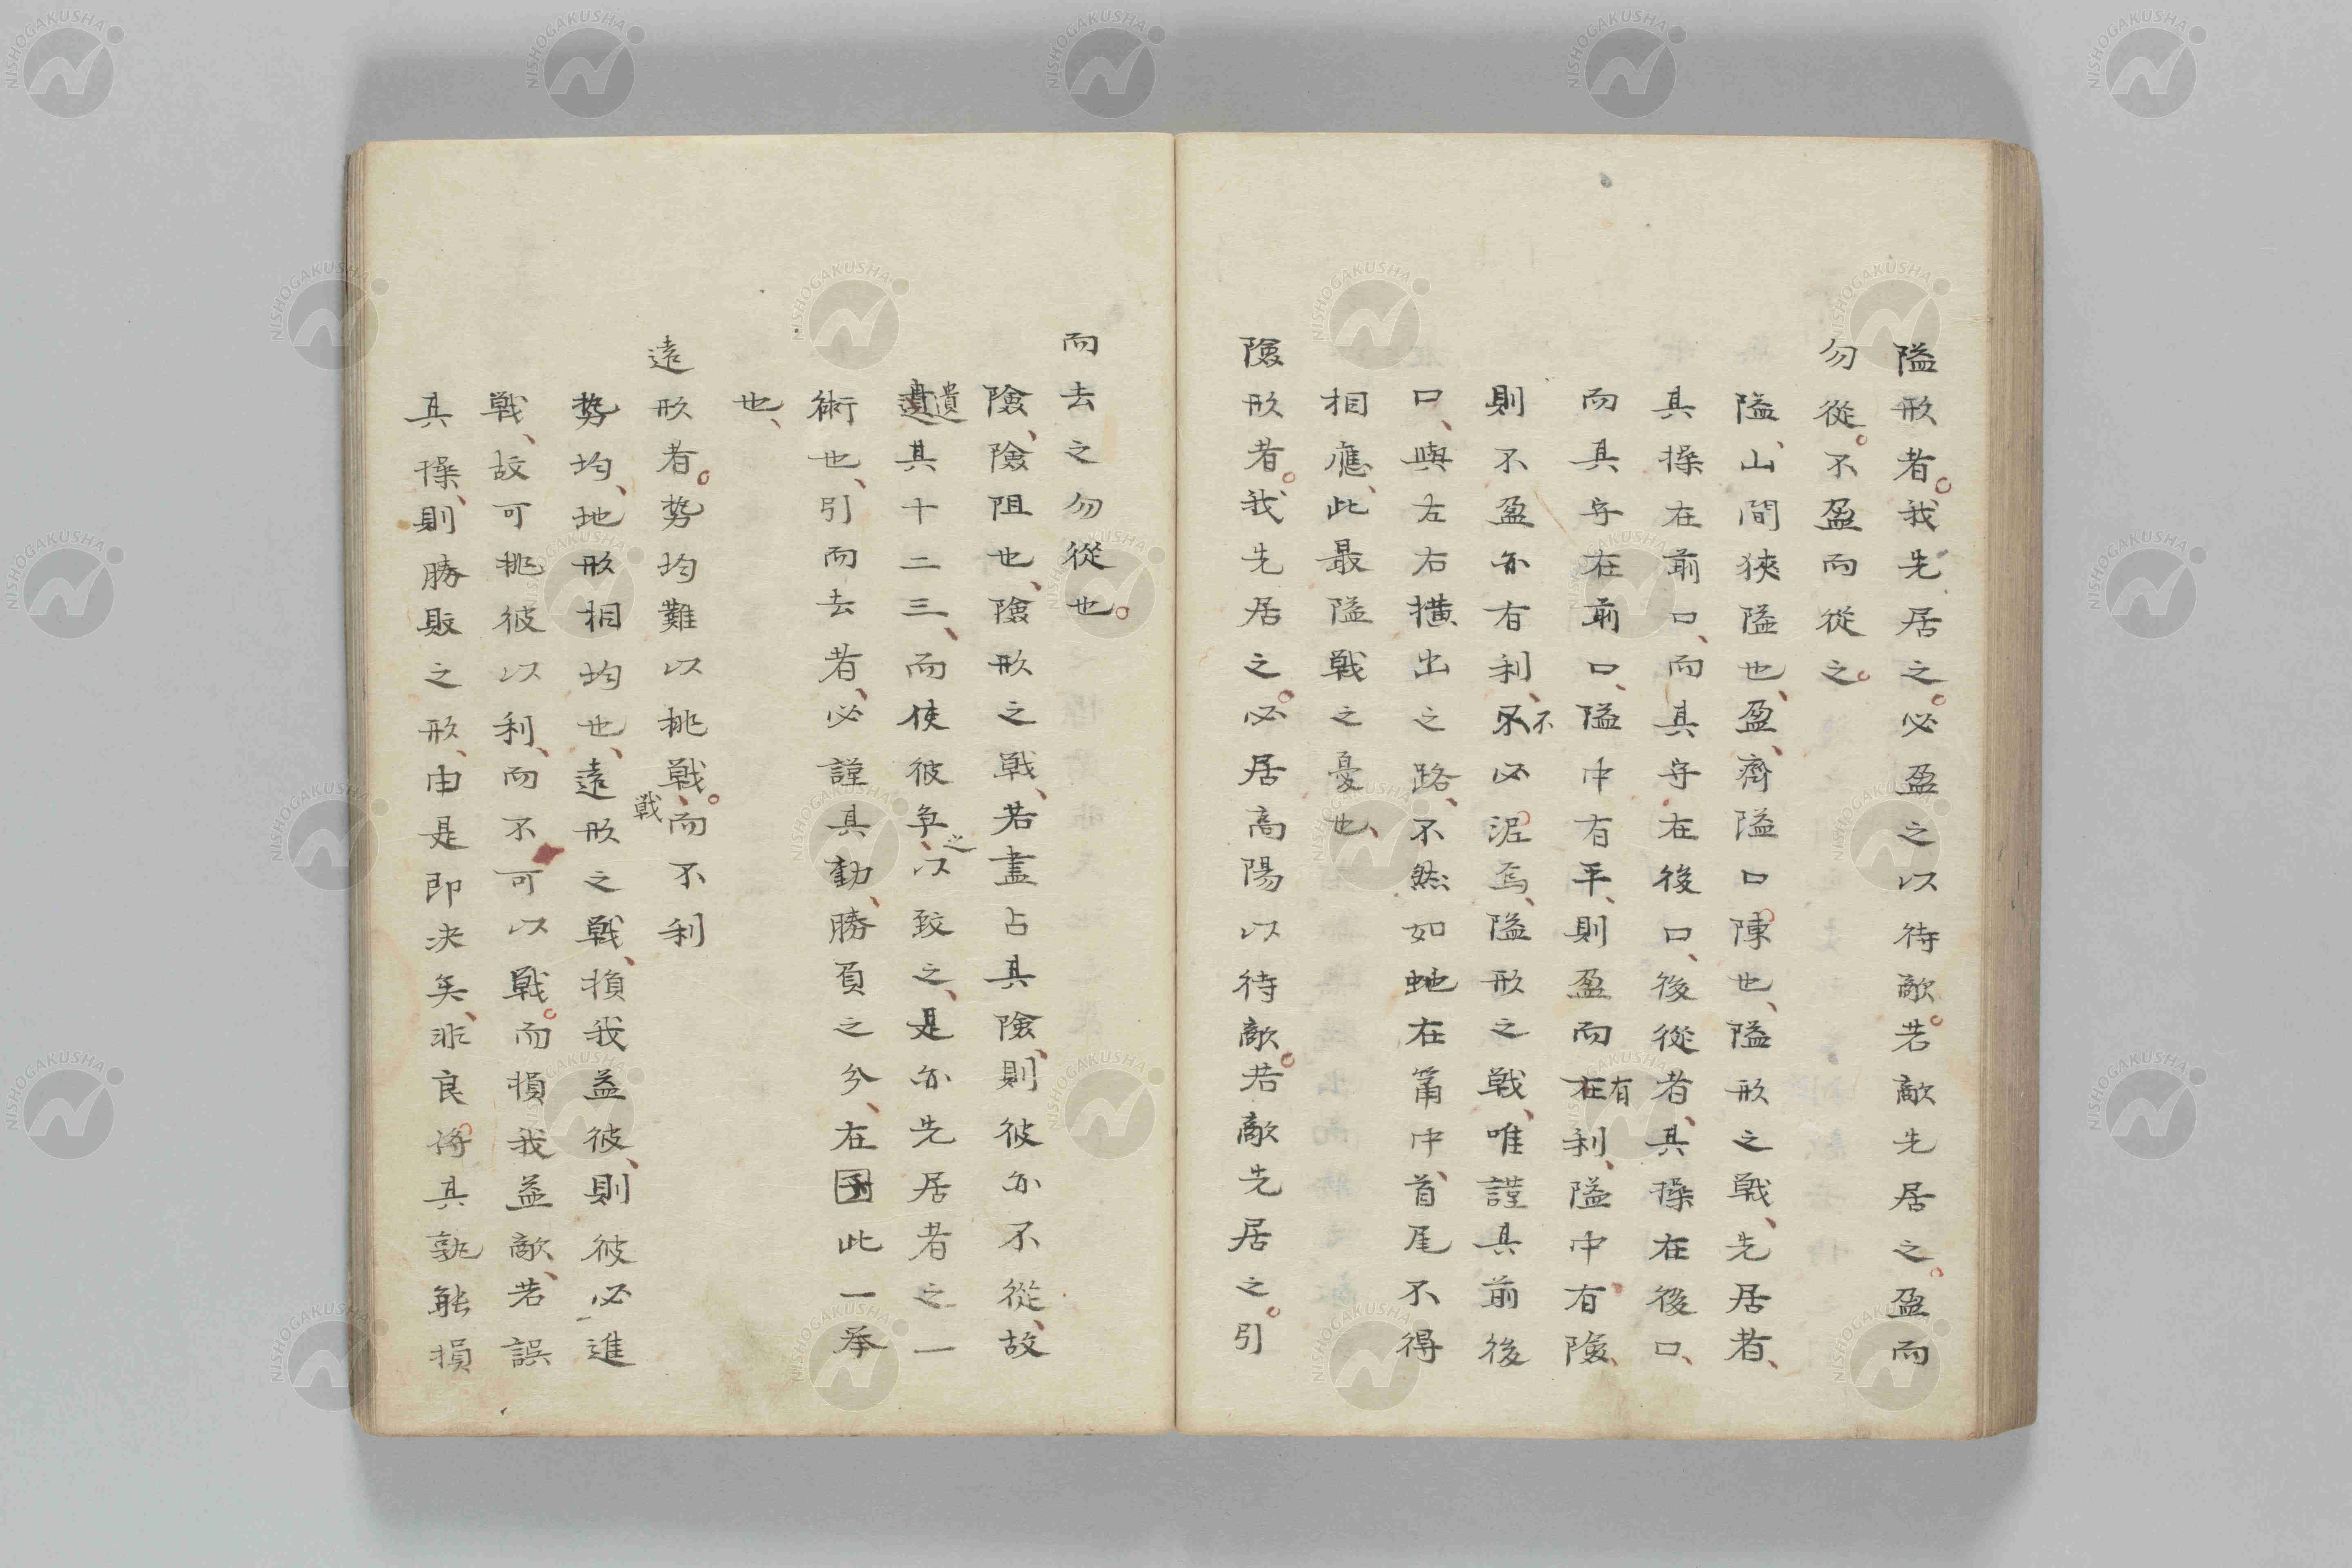 隘形者。我先居之。必盈之以待敵。若敵先居之。盈而
勿從。不盈而從之。
隘、山間狹隘也、盈、齊隘口陳也、隘形之戰、先居者、
其操在前口、而其守在後口、後從者、其操在後口、
而其守在前口、隘中有平、則盈而在有利、隘中有險、
則不盈亦有利、不不必泥焉、隘形之戰、唯謹其前後
口、與左右橫出之路、不然如虵在筩中、首尾不得
相應、此最隘戰之憂也、
險形者。我先居之。必居高陽以待敵。若敵先居之。引
而去之勿從也。
險、險阻也、險形之戰、若盡占其險、則彼亦不從、故
遺遺其十二三、而使彼爭之、以致之、是亦先居者之一
術也、引而去者、必謹其動、勝負之分、在此一举
也、
遠形者。勢均難以挑戰。戰而不利
勢均、地形相均也、遠形之戰、損我益彼、則彼必進
戰、故可挑彼以利、而不可以戰。而損我益敵、若誤
其操、則勝敗之形、由是即决矣、非良將其孰能損
NISHOGAKUSHA